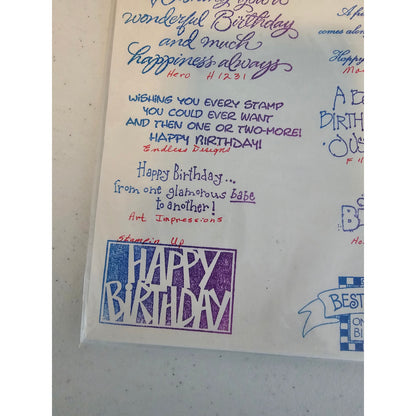 wonderful Birthday
and much
happiness always
Hero H1231
WISHING YOU EVERY STAMP
YOU COULD EVER WANT
AND THEN ONE OR TWO-MORE!
HAPPY BIRTHDAY!
Endless Designs
Happy Birthday...
from one glamorous babe
to another!
Art Impressions
Stampin Up
HAPPY
BiRTHDAY
comes along
Happy
A B
BIRTH
BEST
ON
BI